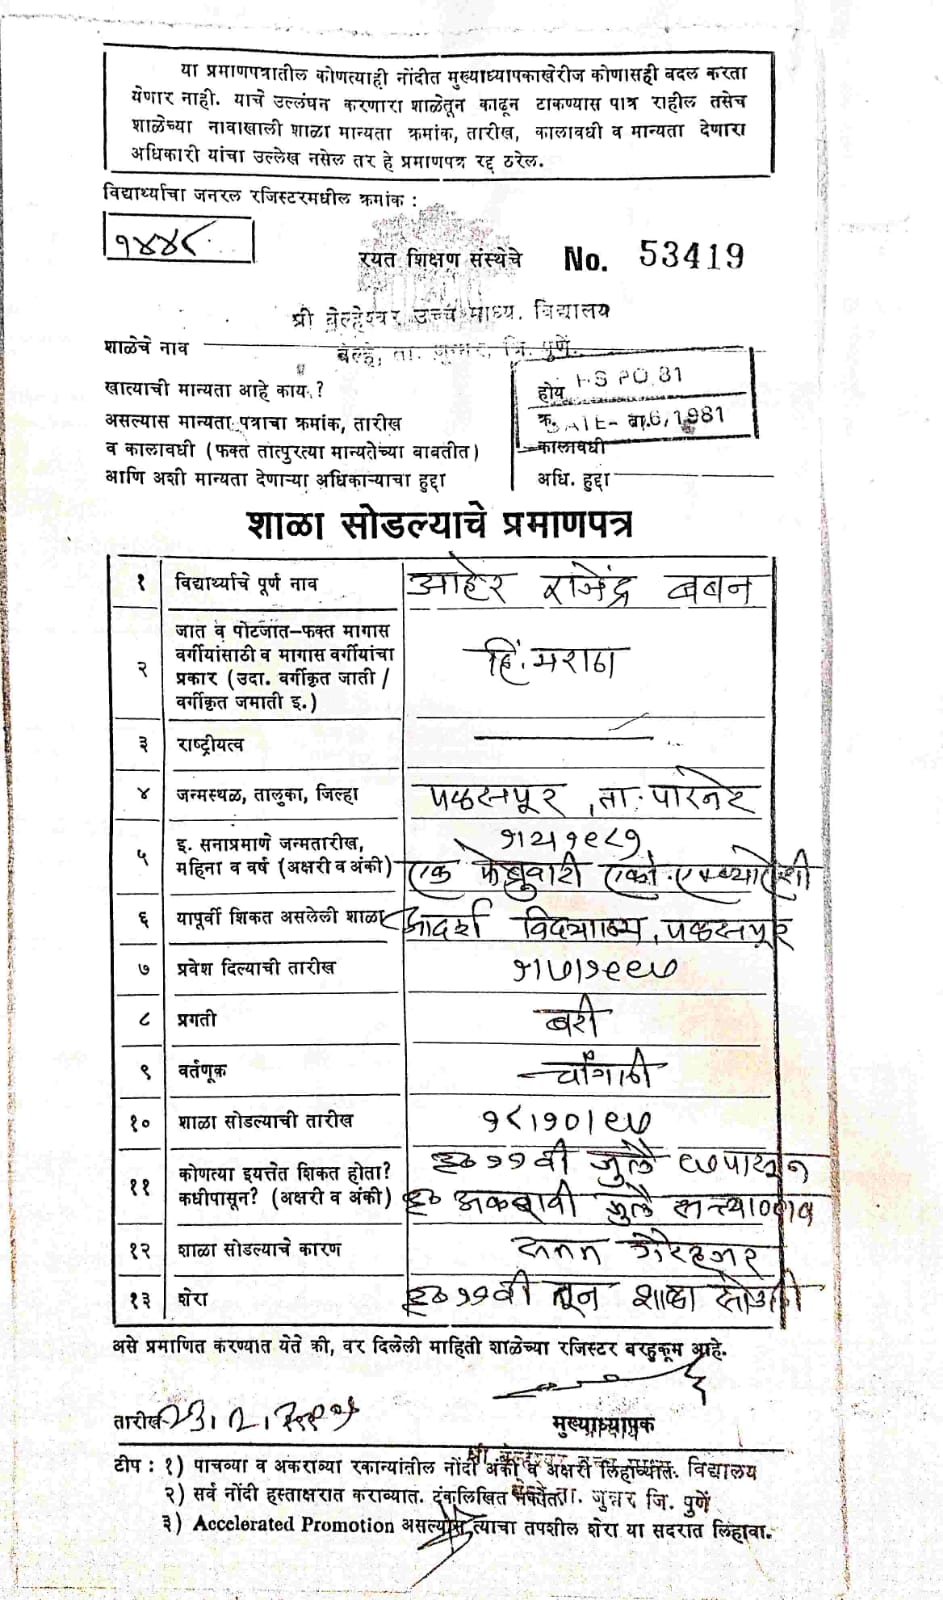 या प्रमाणपत्रातील कोणत्याही नोंदीत मुख्याध्यापकाखेरीज कोणासही बदल करता
येणार नाही. याचे उल्लंघन करणारा शाळेतून काढून टाकण्यास पात्र राहील तसेच
शाळेच्या नावाखाली शाळा मान्यता क्रमांक, तारीख, कालावधी व मान्यता देणारा
अधिकारी यांचा उल्लेख नसेल तर हे प्रमाणपत्र रद्द ठरेल.
विद्यार्थ्याचा जनरल रजिस्टरमधील क्रमांक :
१४४८
रयत शिक्षण संस्थेचे No. 53419
श्री बेल्हेश्वर उच्च माध्य. विद्यालय
शाळेचे नाव बेल्हे, ता. जुन्नर, जि. पुणे.
खात्याची मान्यता आहे काय ? होय HS PO. 81
असल्यास मान्यता पत्राचा क्रमांक, तारीख क्र. DATE- 6, 1981
व कालावधी (फक्त तात्पुरत्या मान्यतेच्या बाबतीत) कालावधी
आणि अशी मान्यता देणाऱ्या अधिकाऱ्याचा हुद्दा अधि. हुद्दा
शाळा सोडल्याचे प्रमाणपत्र
१ विद्यार्थ्याचे पूर्ण नाव आहेर राजेंद्र बबन
२ जात व पोटजात–फक्त मागास
वर्गीयांसाठी व मागास वर्गीयांचा
प्रकार (उदा. वर्गीकृत जाती /
वर्गीकृत जमाती इ.) हिं. मराठा
३ राष्ट्रीयत्व
४ जन्मस्थळ, तालुका, जिल्हा पळसपूर, ता. पारनेर
५ इ. सनाप्रमाणे जन्मतारीख,
महिना व वर्ष (अक्षरी व अंकी) १।२।१९८१
एक फेब्रुवारी एको. एक्क्याऐंशी
६ यापूर्वी शिकत असलेली शाळा आदर्श विद्यालय, पळसपूर
७ प्रवेश दिल्याची तारीख १।७।१९९७
८ प्रगती बरी
९ वर्तणूक चांगली
१० शाळा सोडल्याची तारीख १८।१०।९७
११ कोणत्या इयत्तेत शिकत होता?
कधीपासून? (अक्षरी व अंकी) इ० ११ वी जुलै ९७ पासून
इ० अकरावी जुलै सत्त्याण्णव
१२ शाळा सोडल्याचे कारण सतत गैरहजर
१३ शेरा इ० ११ वी तून शाळा सोडली
असे प्रमाणित करण्यात येते की, वर दिलेली माहिती शाळेच्या रजिस्टर बरहुकूम आहे.
तारीख
मुख्याध्यापक
श्री बेल्हेश्वर उच्च माध्य. विद्यालय
बेल्हे, ता. जुन्नर जि. पुणें
टीप : १) पाचव्या व अकराव्या रकान्यांतील नोंदी अंकी व अक्षरी लिहाव्यात.
२) सर्व नोंदी हस्ताक्षरात कराव्यात. टंकलिखित नकोत.
३) Accelerated Promotion असल्यास त्याचा तपशील शेरा या सदरात लिहावा.